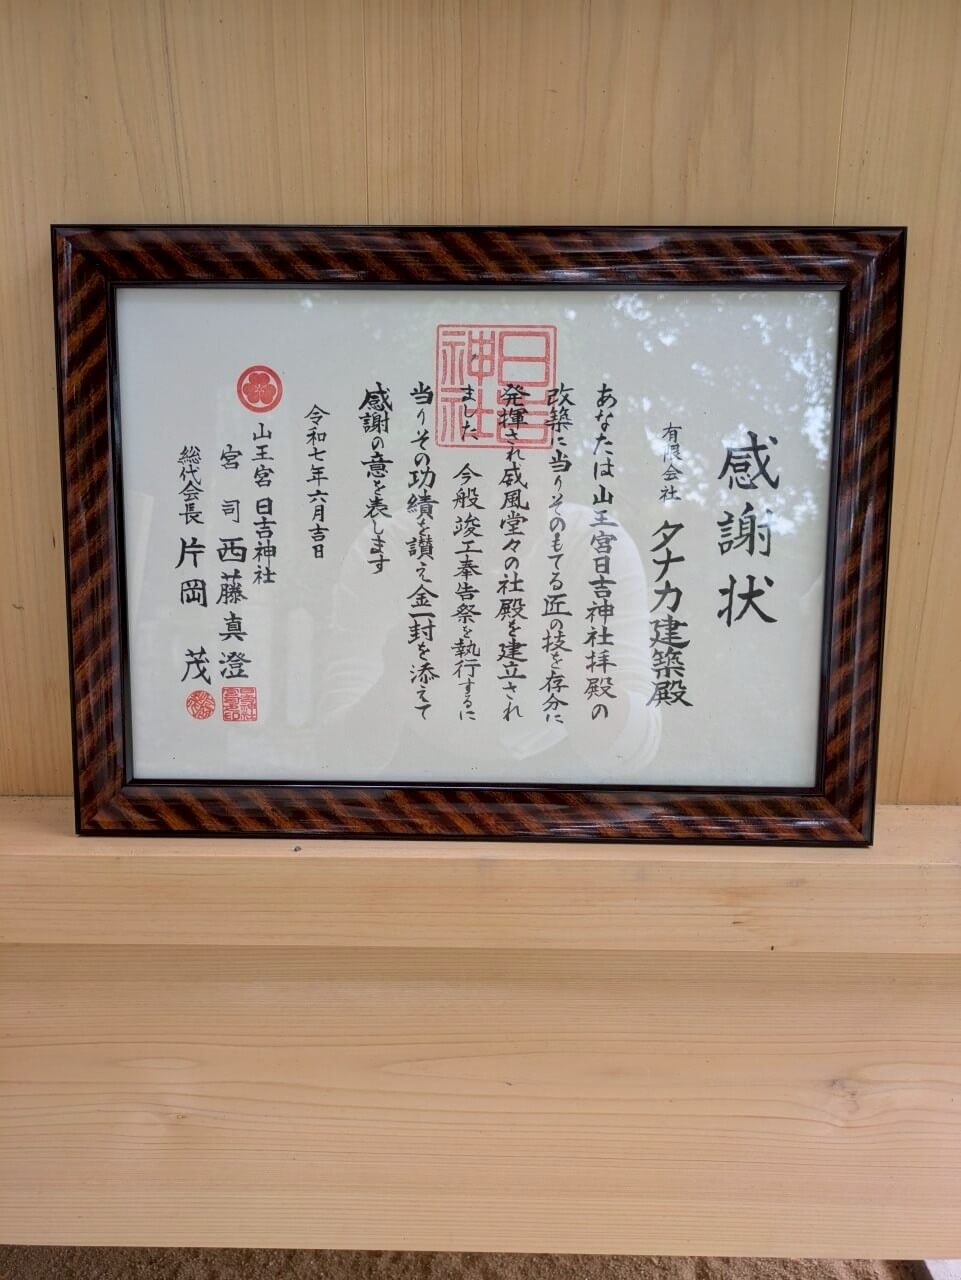 感謝状
有限会社 タナカ建築殿
あなたは山王宮日吉神社拝殿の
改築に当りそのもてる匠の技を存分に
発揮され威風堂々の社殿を建立され
ました 今般竣工奉告祭を執行するに
当りその功績を讃え金一封を添えて
感謝の意を表します
令和七年六月吉日
山王宮 日吉神社
宮司 西藤真澄
総代会長 片岡 茂
日吉
神社